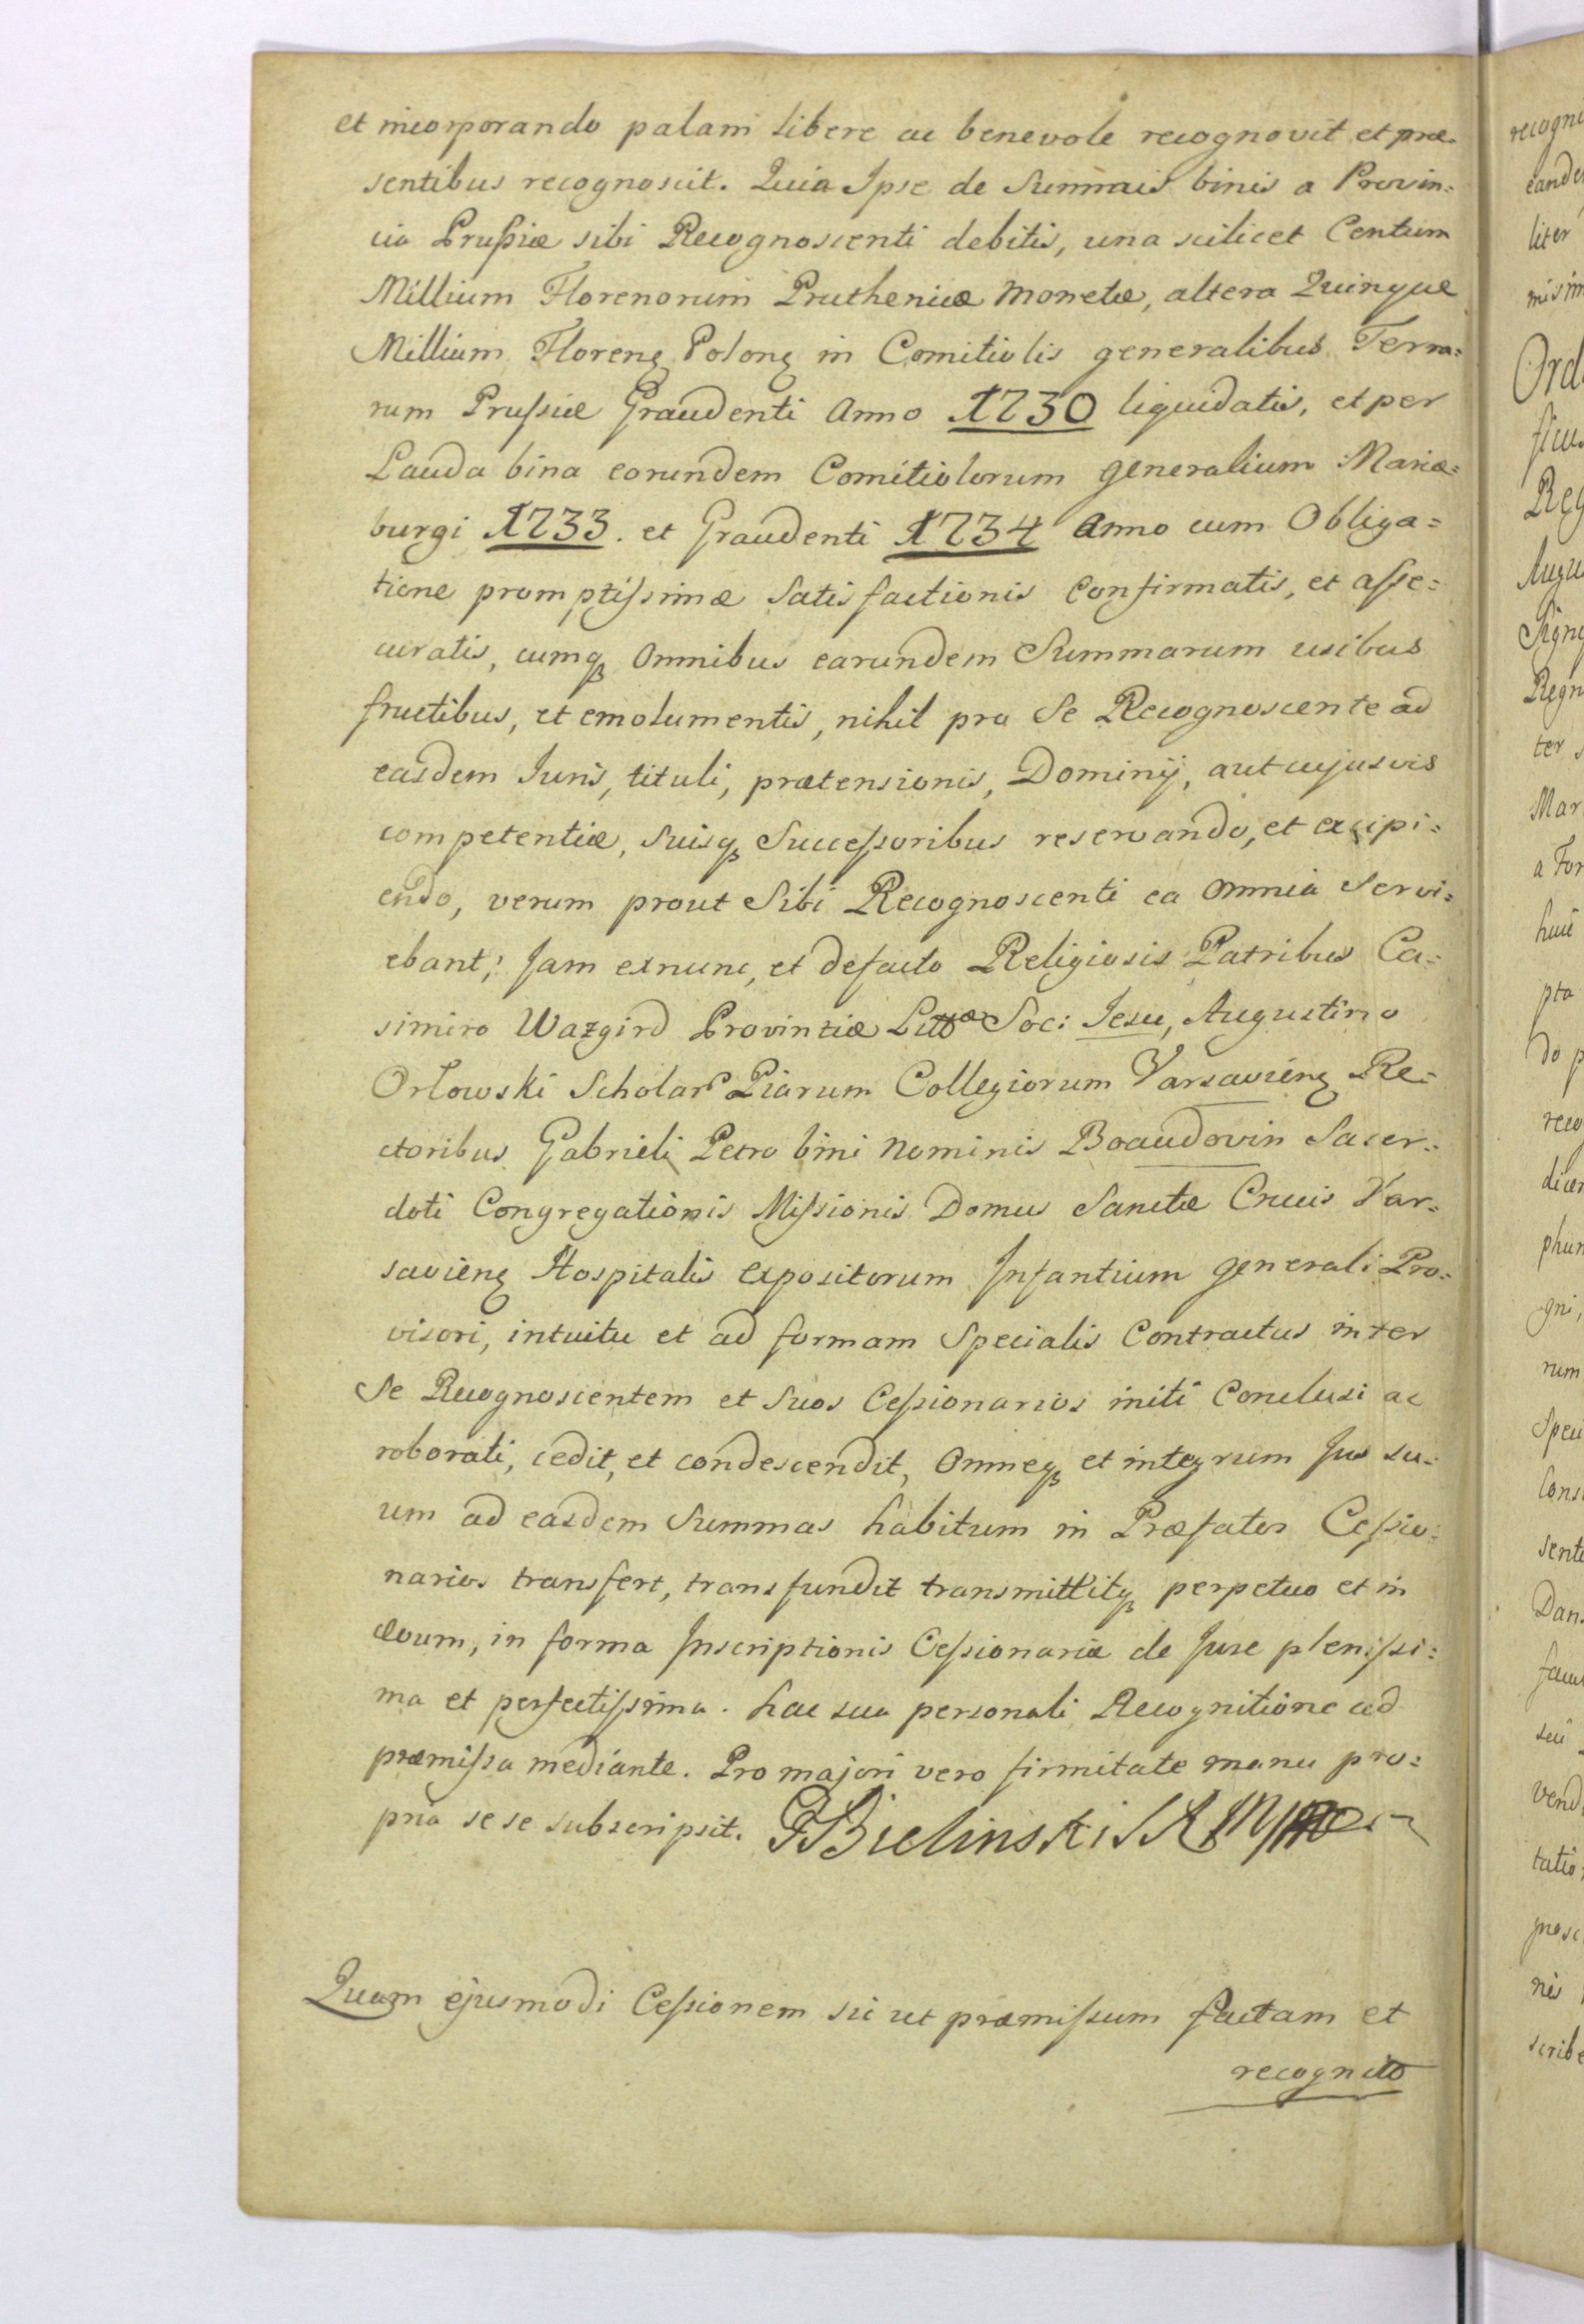 et incorporando palam libere ac benevole recognovit et præ-
sentibus recognoscit. Quia Ipse de Summis binis a Provin=
cia Prussiæ sibi Recognoscenti debitis, una scilicet Centum
Millium Florenorum Pruthenicæ Monetæ, altera Quinque
Millium Florenę Polonę in Comitiolis generalibus Terra=
rum Prussiæ Graudenti Anno 1730 liquidatis, et per
Lauda bina eorundem Comitiolorum generalium Mariæ=
burgi 1733. et Graudenti 1734 Anno cum Obliga=
tione promptissimæ Satisfactionis Confirmatis, et asse=
curatis, cumqꝫ Omnibus earundem Summarum usibus
fructibus, et emolumentis, nihil pro Se Recognoscente ad
easdem Juris, tituli, prætensionis, Dominij, aut cujusvis
competentiæ, Suisqꝫ Successoribus reservando, et excipi=
endo, verum prout Sibi Recognoscenti ea Omnia Servi=
ebant; Jam exnunc, et defacto Religiosis Patribus Ca=
simiro Wazgird Provintiæ Littæ Soci: Jesu, Augustino
Orłowski Scholar Piarum Collegiorum Varsavienę Re=
ctoribus Gabrieli Petro bini Nominis Boaudovin Sacer=
doti Congregationis Missionis Domus Sanctæ Crucis Var=
savienę Hospitalis Expositorum Infantium generali Pro=
visori, intuitu et ad formam Specialis Contractus inter
Se Recognoscentem et Suos Cessionarios initi Conclusi ac
roborati, cedit, et condescendit, Omneqꝫ et integrum Jus su=
um ad easdem Summas habitum in Præfatos Cessio=
narios transfert, transfundit transmittitqꝫ perpetuo et in
ævum, in forma Inscriptionis Cessionariæ de Jure plenissi=
ma et perfectissima. hac sua personali Recognitione ad
præmissa mediante. Pro majori vero firmitate manu pro=
pria sese subscripsit. FBielinski
Quam ejusmodi Cessionem sic ut præmissum factam et
recognito